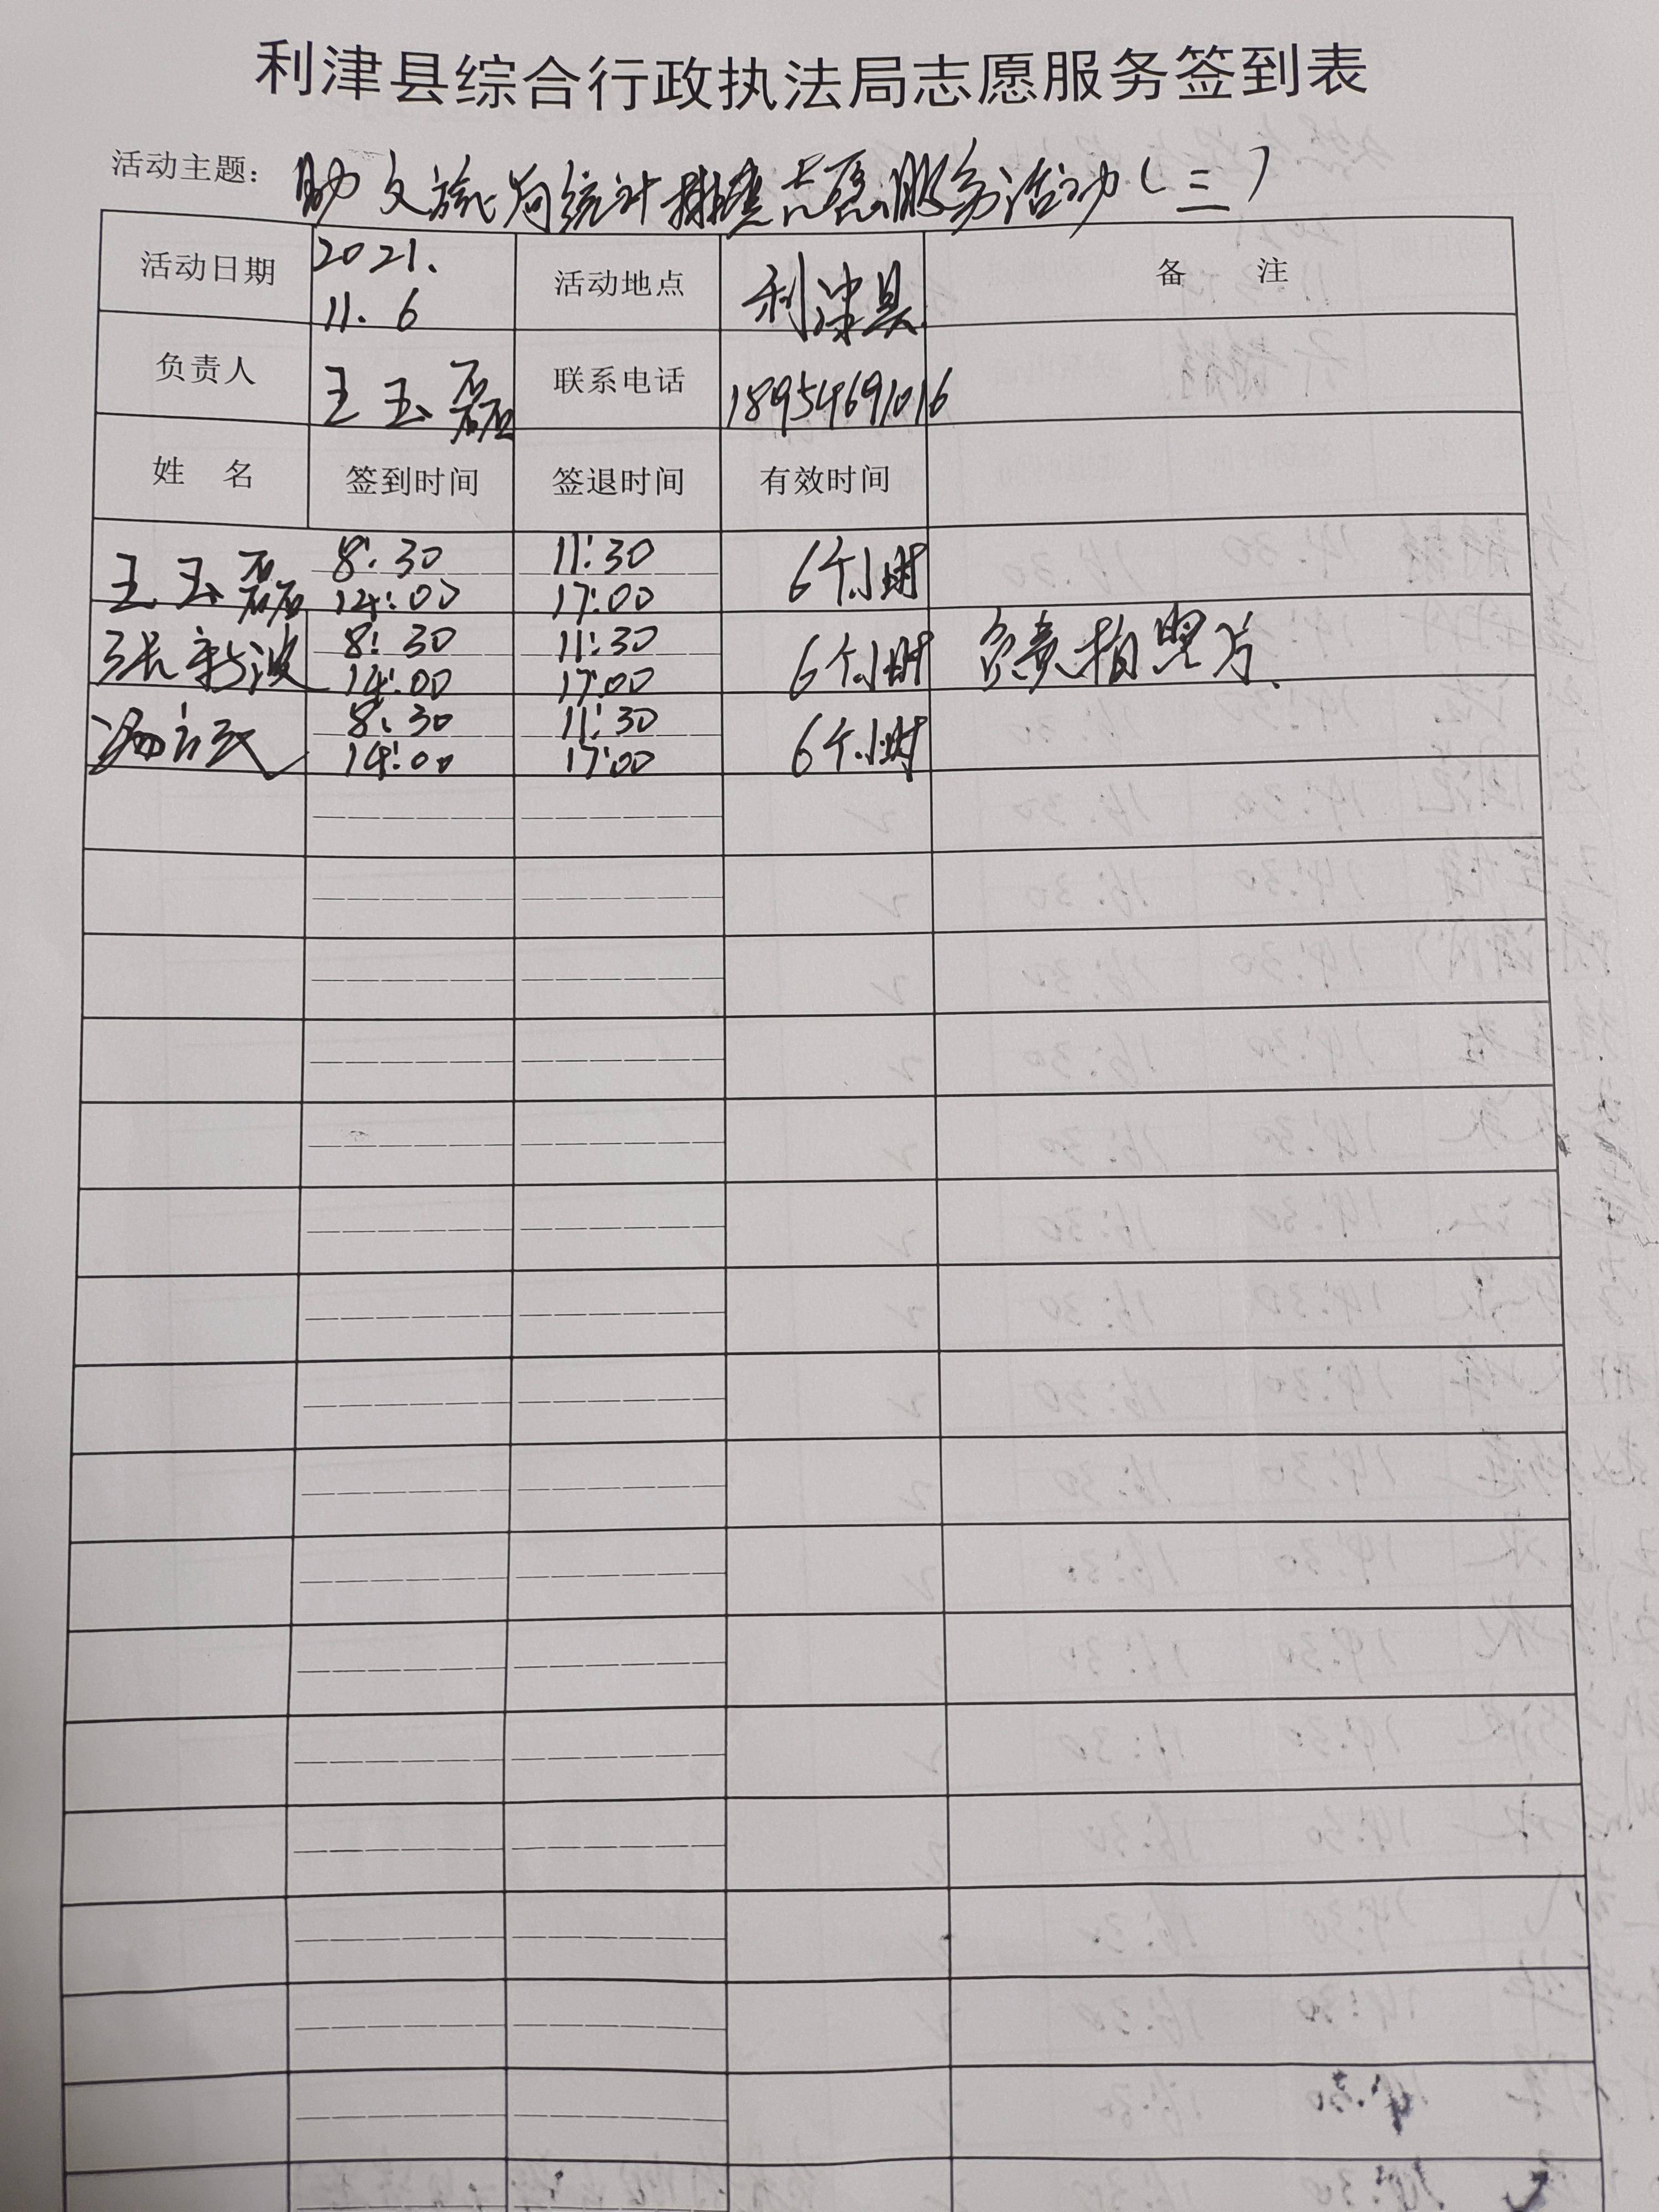 利津县综合行政执法局志愿服务签到表
活动主题: 助文旅局统计排查志愿服务活动(三)
活动日期 2021.11.6 活动地点 利津县 备 注
负责人 王玉磊 联系电话 18954691016
姓 名 签到时间 签退时间 有效时间
王玉磊 8:30 11:30 6个小时
14:00 17:00
张新波 8:30 11:30 6个小时 负责拍照片
14:00 17:00
8:30 11:30 6个小时
14:00 17:00